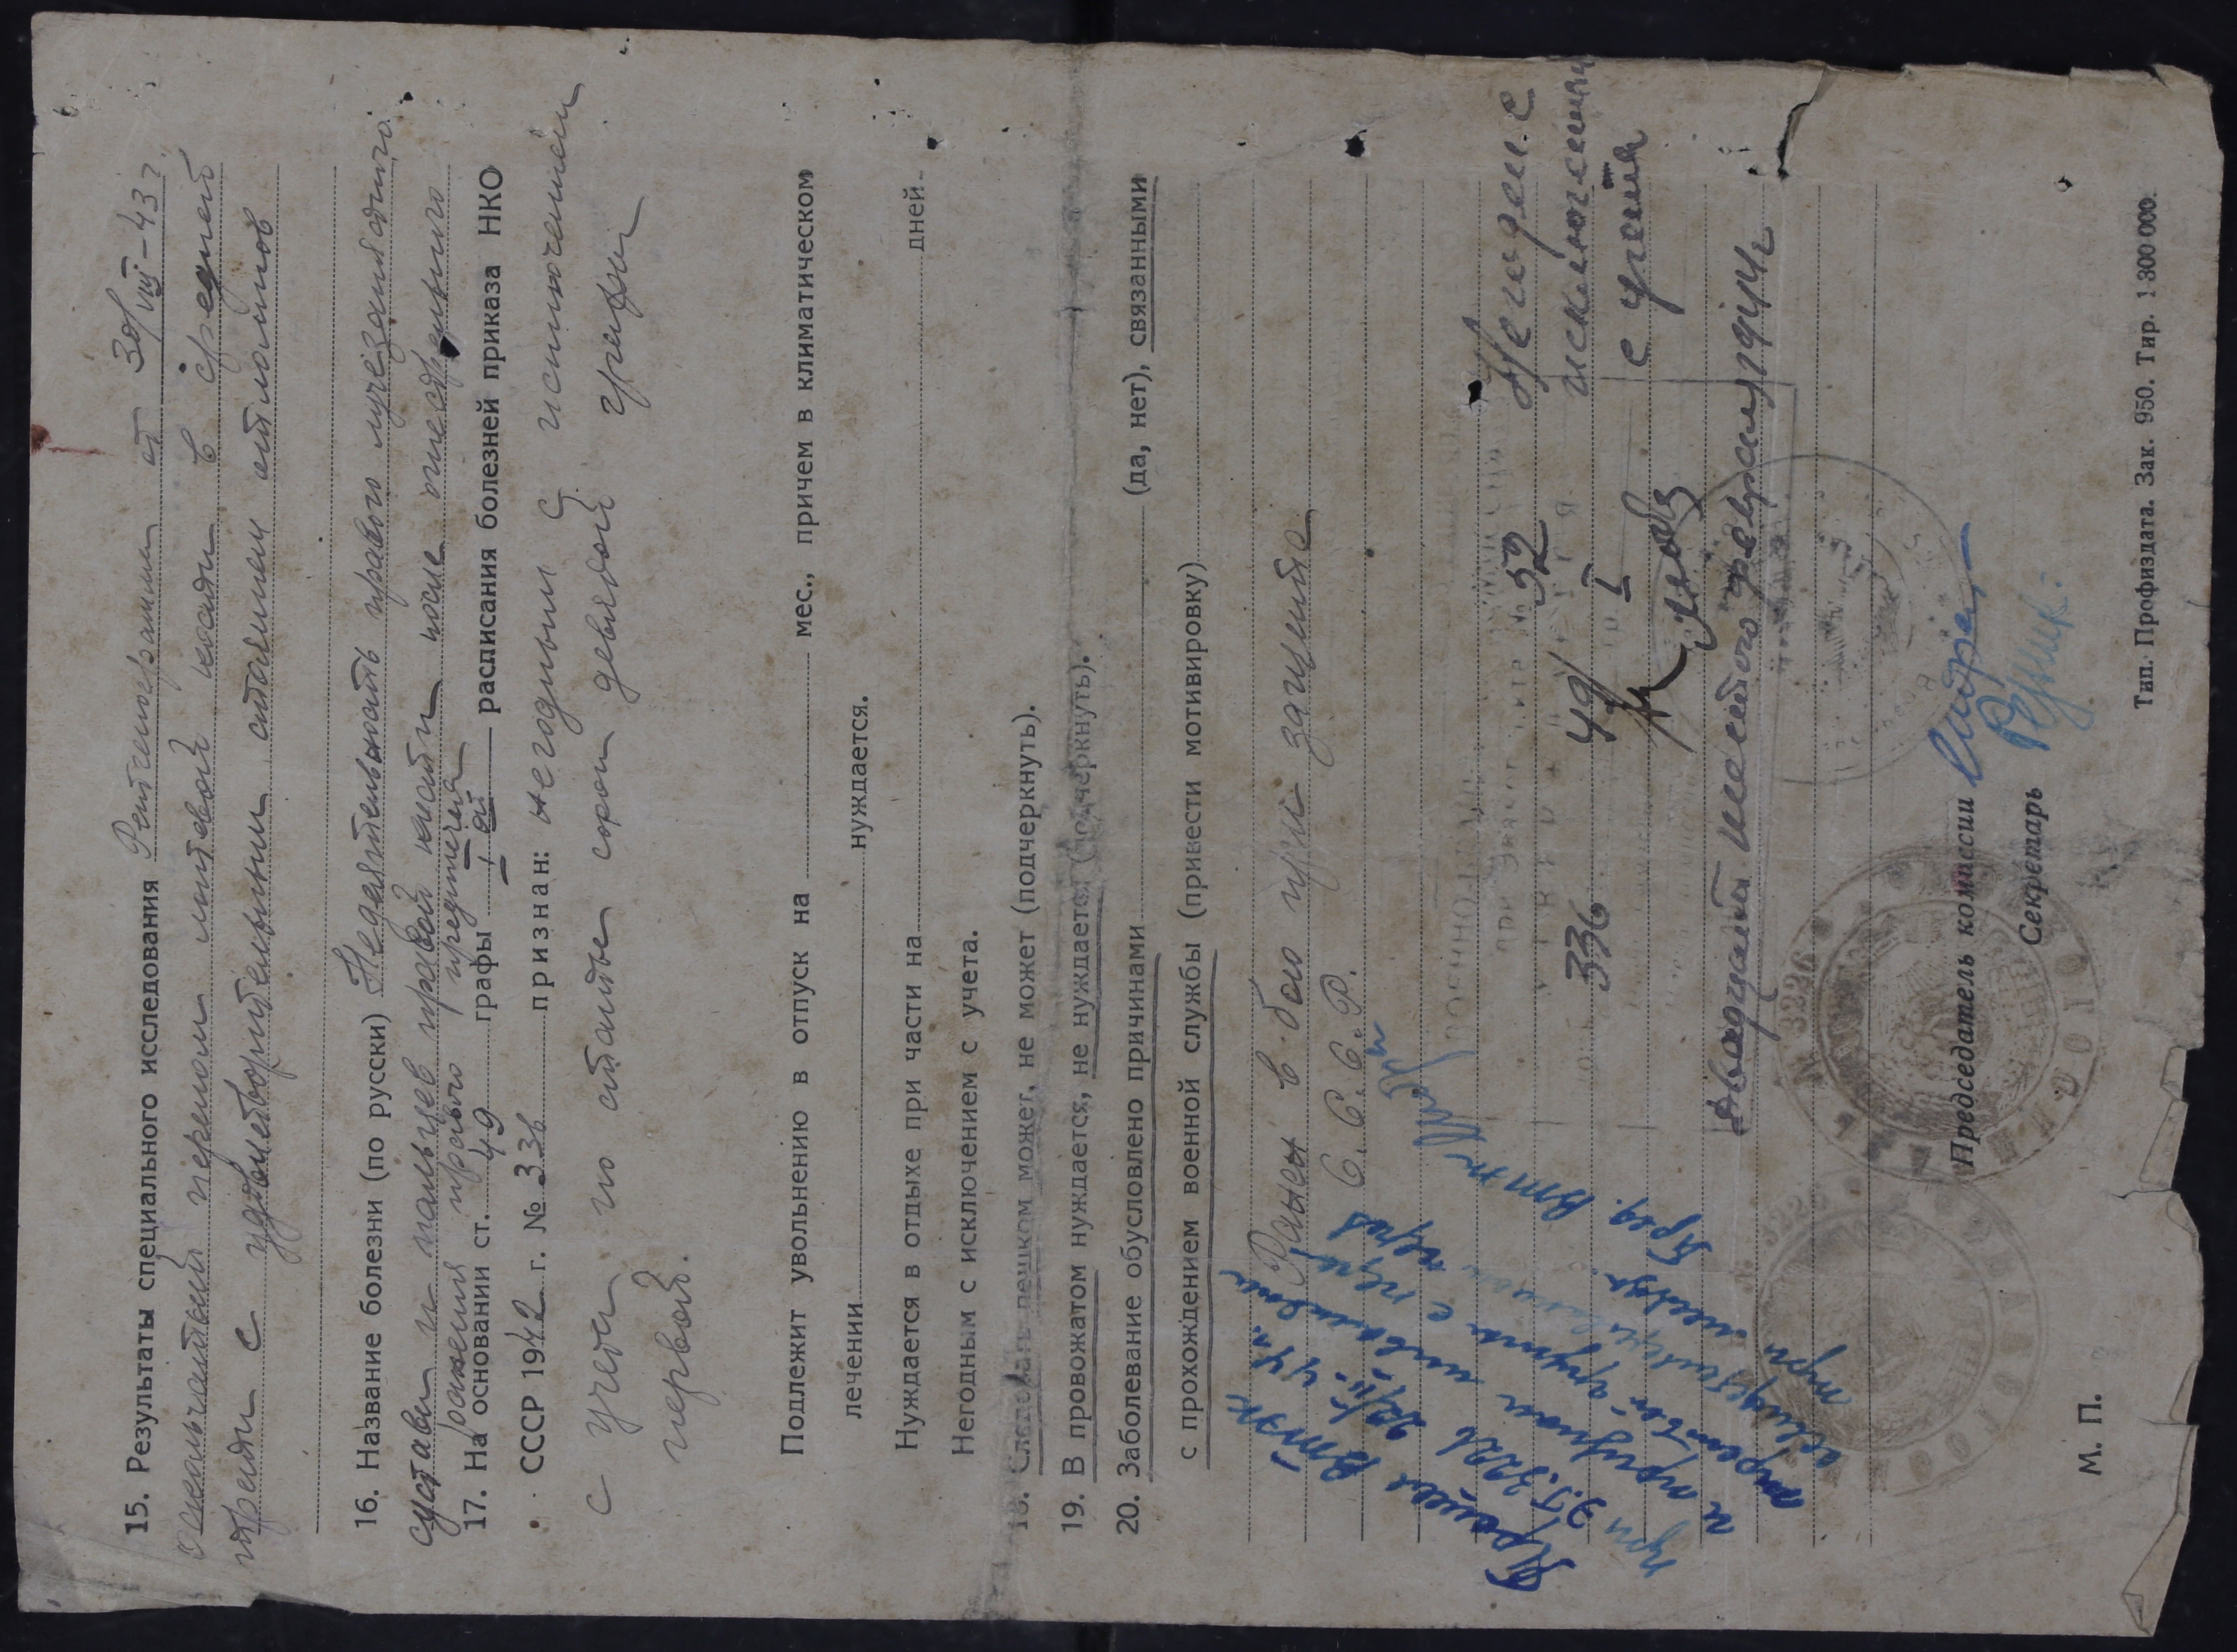 15. Результаты специального исследования Рентгенограмма от 30/VIII-43 г.
оскольчатый перелом локтевой кости в средней
трети с удовлетворительным стоянием отломков
16. Название болезни (по русски) Недеятельность правого лучезапястного
сустава и пальцев правой кисти после огнестрельного
ранения правого предплечья
17. На основании ст. 49 графы 1 ой расписания болезней приказа НКО
СССР 1942 г. № 336 признан: негодным с исключением
с учета по статье сорок девятой графы
первой.
Подлежит увольнению в отпуск на мес., причем в климатическом
лечении нуждается.
Нуждается в отдыхе при части на дней
Негодным с исключением с учета.
18. Следовать пешком может, не может (подчеркнуть).
19. В провожатом нуждается, не нуждается (подчеркнуть).
20. Заболевание обусловлено причинами (да, нет), связанными
с прохождением военной службы (привести мотивировку)
Ранен в бою при защите
С. С. С. Р.
Негоден с
исключением
с учета
52
336 49 I
двадцать шестого февраля
Прошел ВТЭК
и признан инвалидом
третьей группы
Пред. ВТЭК
№ 3226
Председатель комиссии
Секретарь
М. П.
Тип. Профиздата. Зак. 950. Тир. 1 300 000.